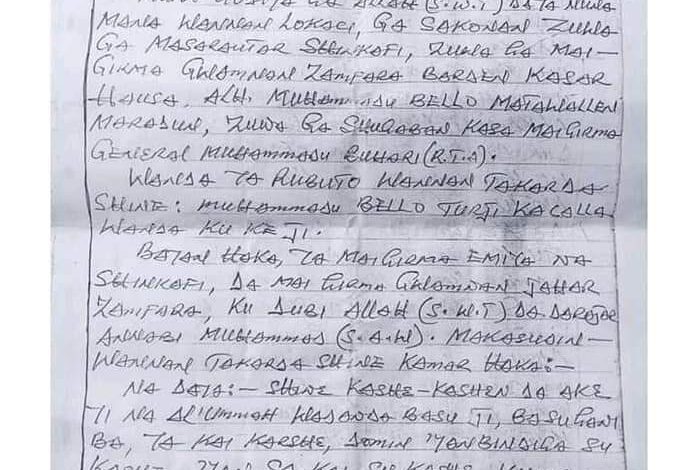 GA ALLAH (S.W.T) DAYA NUNA
MANA WANNAN LOKACI, GA SAKONAN ZUWA
GA MASARAUTAR SHINKAFI, ZUWA GA MAI-
GIRMA GWAMNAN ZAMFARA BARDEN KASAR
HAUSA, ALH. MUHAMMADU BELLO MATAWALLEN
MARADUN, ZUWA GA SHUGABAN KASA MAIGIRMA
GENERAL MUHAMMADU BUHARI (R.T.A).
WANDA YA RUBUTO WANNAN TAKARDA
SHINE: MUHAMMADU BELLO TURJI KACALLA
WANDA KU KE JI.
BAYAN HAKA, YA MAI GIRMA EMIYA NA
SHINKAFI, DA MAI GIRMA GWAMNAN JAHAR
ZAMFARA, KU DUBI ALLAH (S.W.T) DA DARAJAR
ANNABI MUHAMMAD (S.A.W). MAKASUDIN-
WANNAN TAKARDA SHINE KAMAR HAKA:-
NA DAYA:- SHINE KASHE-KASHEN DA AKE
YI NA AL'UMMAH WADANDA BASU JI, BASU GANI
BA, YA KAI KARSHE, DOMIN 'YANBINDIGA SU